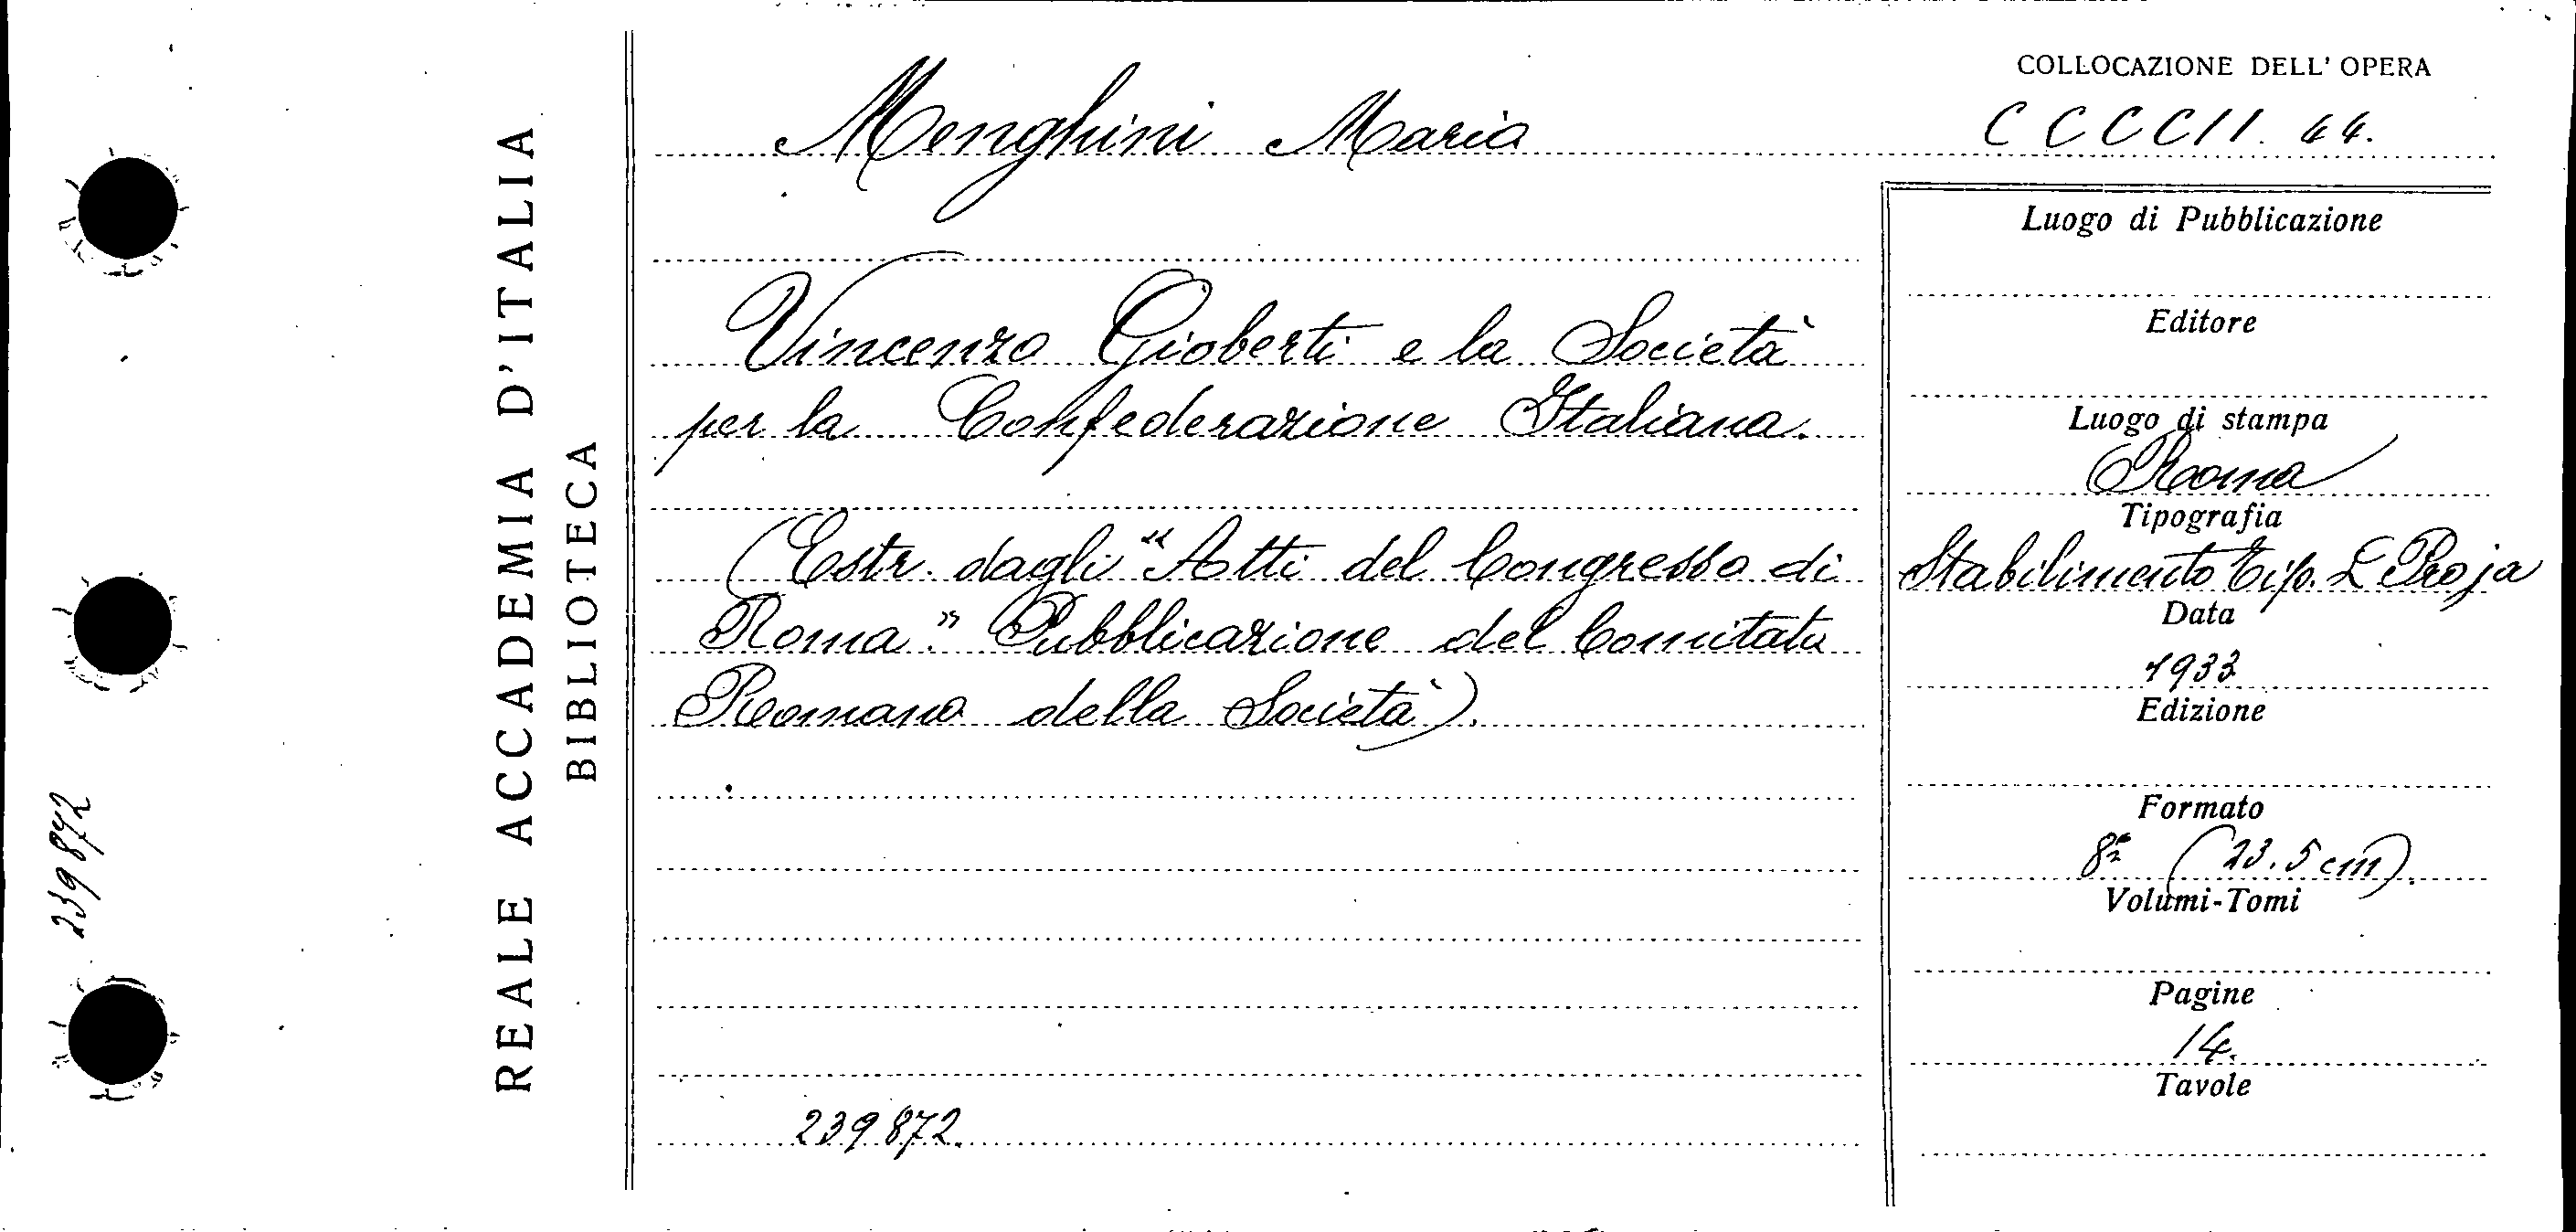 COLLOCAZIONE DELL' OPERA
Menghini Maria
CCCCII. 44.
REALE ACCADEMIA D'ITALIA
BIBLIOTECA
239872
Vincenzo Gioberti e la Società
per la Confederazione Italiana.
(Estr. dagli "Atti del Congresso di
Roma." Pubblicazione del Comitato
Romano della Società).
239872.
Luogo di Pubblicazione
Editore
Luogo di stampa
Roma
Tipografia
Stabilimento Tip. L Proja
Data
1933
Edizione
Formato
8º (23.5 cm).
Volumi-Tomi
Pagine
14.
Tavole